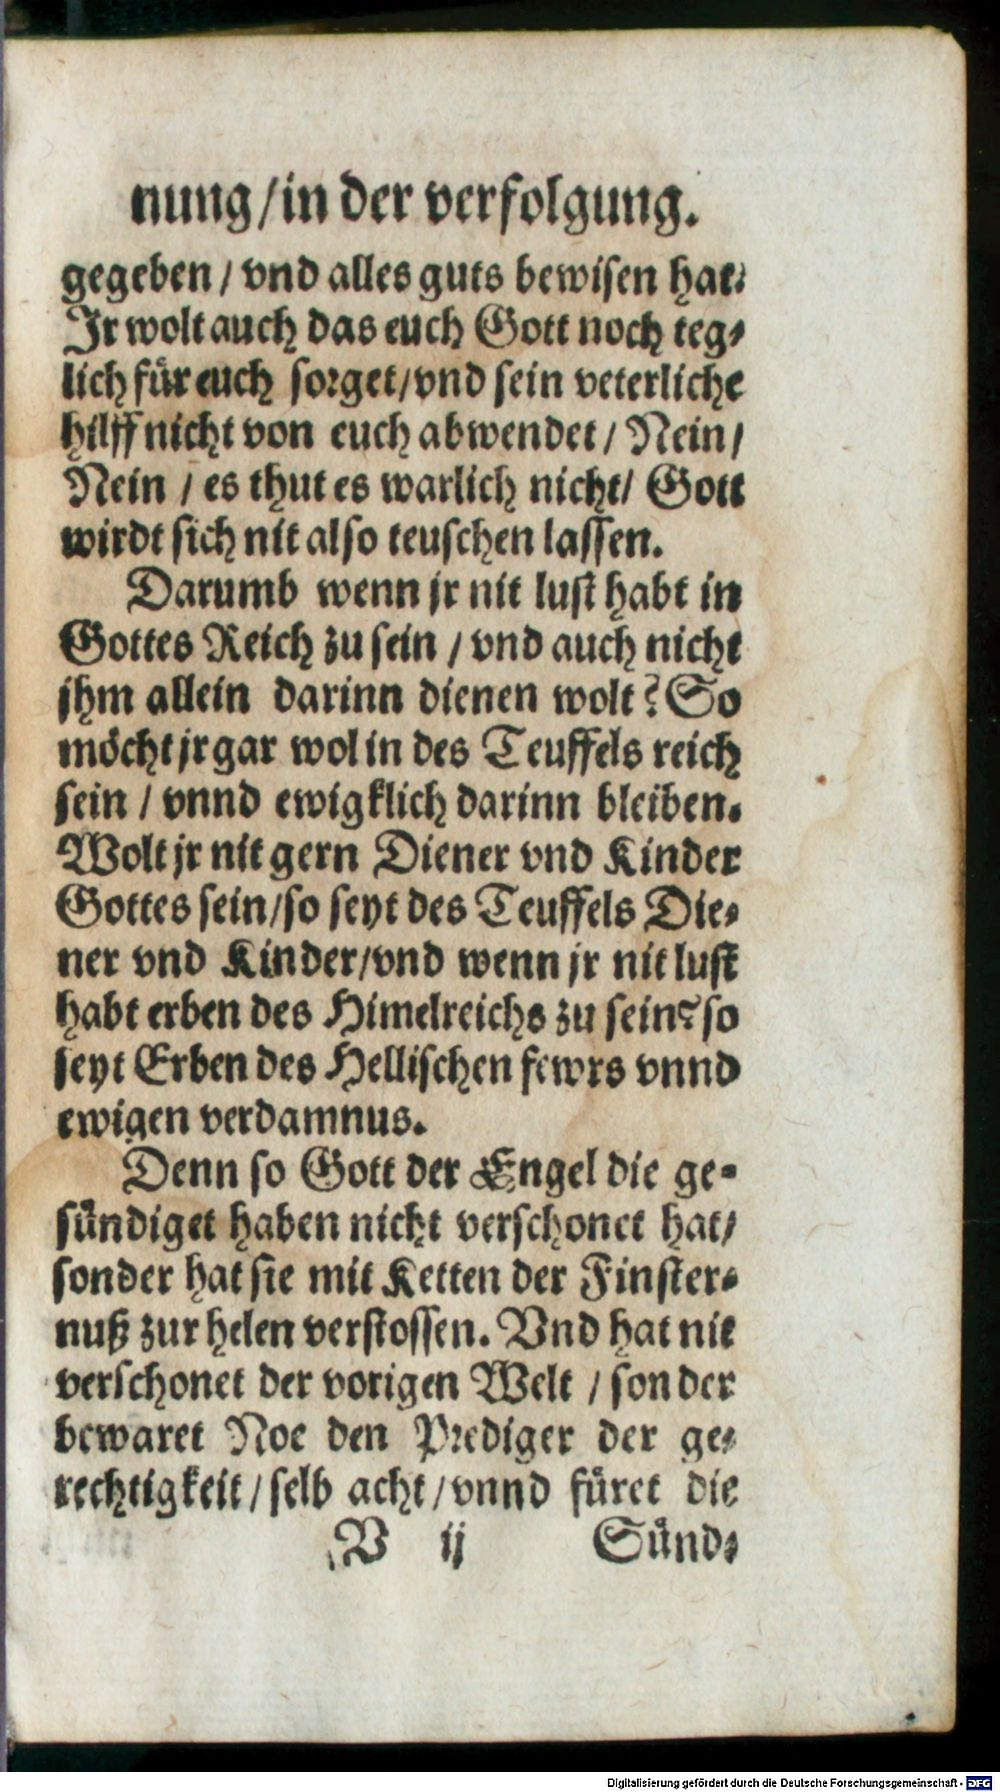 nung/in der verfolgung.
gegeben/ vnd alles guts bewisen hat:
Jr wolt auch das euch Gott noch teg-
lich für euch sorget/vnd sein veterliche
hilff nicht von euch abwendet/ Nein/
Nein / es thut es warlich nicht/ Gott
wirdt sich nit also teuschen lassen.
Darumb wenn jr nit lust habt in
Gottes Reich zu sein / vnd auch nicht
jhm allein darinn dienen wolt? So
möcht jr gar wol in des Teuffels reich
sein / vnnd ewigklich darinn bleiben.
Wolt jr nit gern Diener vnd Kinder
Gottes sein/so seyt des Teuffels Die-
ner vnd Kinder/vnd wenn jr nit lust
habt erben des Himelreichs zu sein? so
seyt Erben des Hellischen fewrs vnnd
ewigen verdamnus.
Denn so Gott der Engel die ge-
sündiget haben nicht verschonet hat/
sonder hat sie mit Ketten der Finster-
nuß zur helen verstossen. Vnd hat nit
verschonet der vorigen Welt / sonder
bewaret Noe den Prediger der ge-
rechtigkeit/ selb acht/vnnd füret die
V ij Sünd-
Digitalisierung gefördert durch die Deutsche Forschungsgemeinschaft - DFG